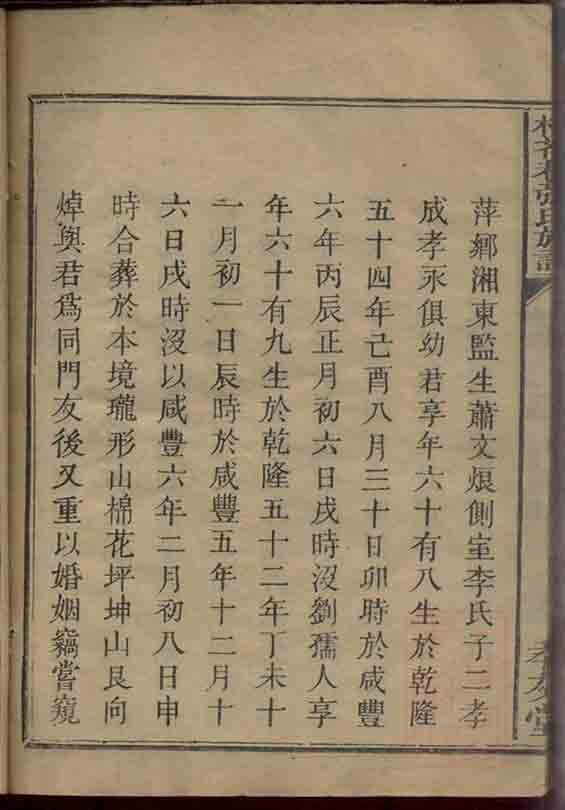 張氏族
萍鄉湘東監生蕭文烺側室李氏子二孝
成孝永俱幼君享年六十有八生於乾隆
五十四年己酉八月三十日卯時於咸豐
六年丙辰正月初六日戌時沒劉孺人享
年六十有九生於乾隆五十二年丁未十
一月初一日辰時於咸豐五年十二月十
六日戌時沒以咸豐六年二月初八日申
時合葬於本境瓏形山棉花坪坤山艮向
焯與君爲同門友後又重以婚姻竊嘗窺